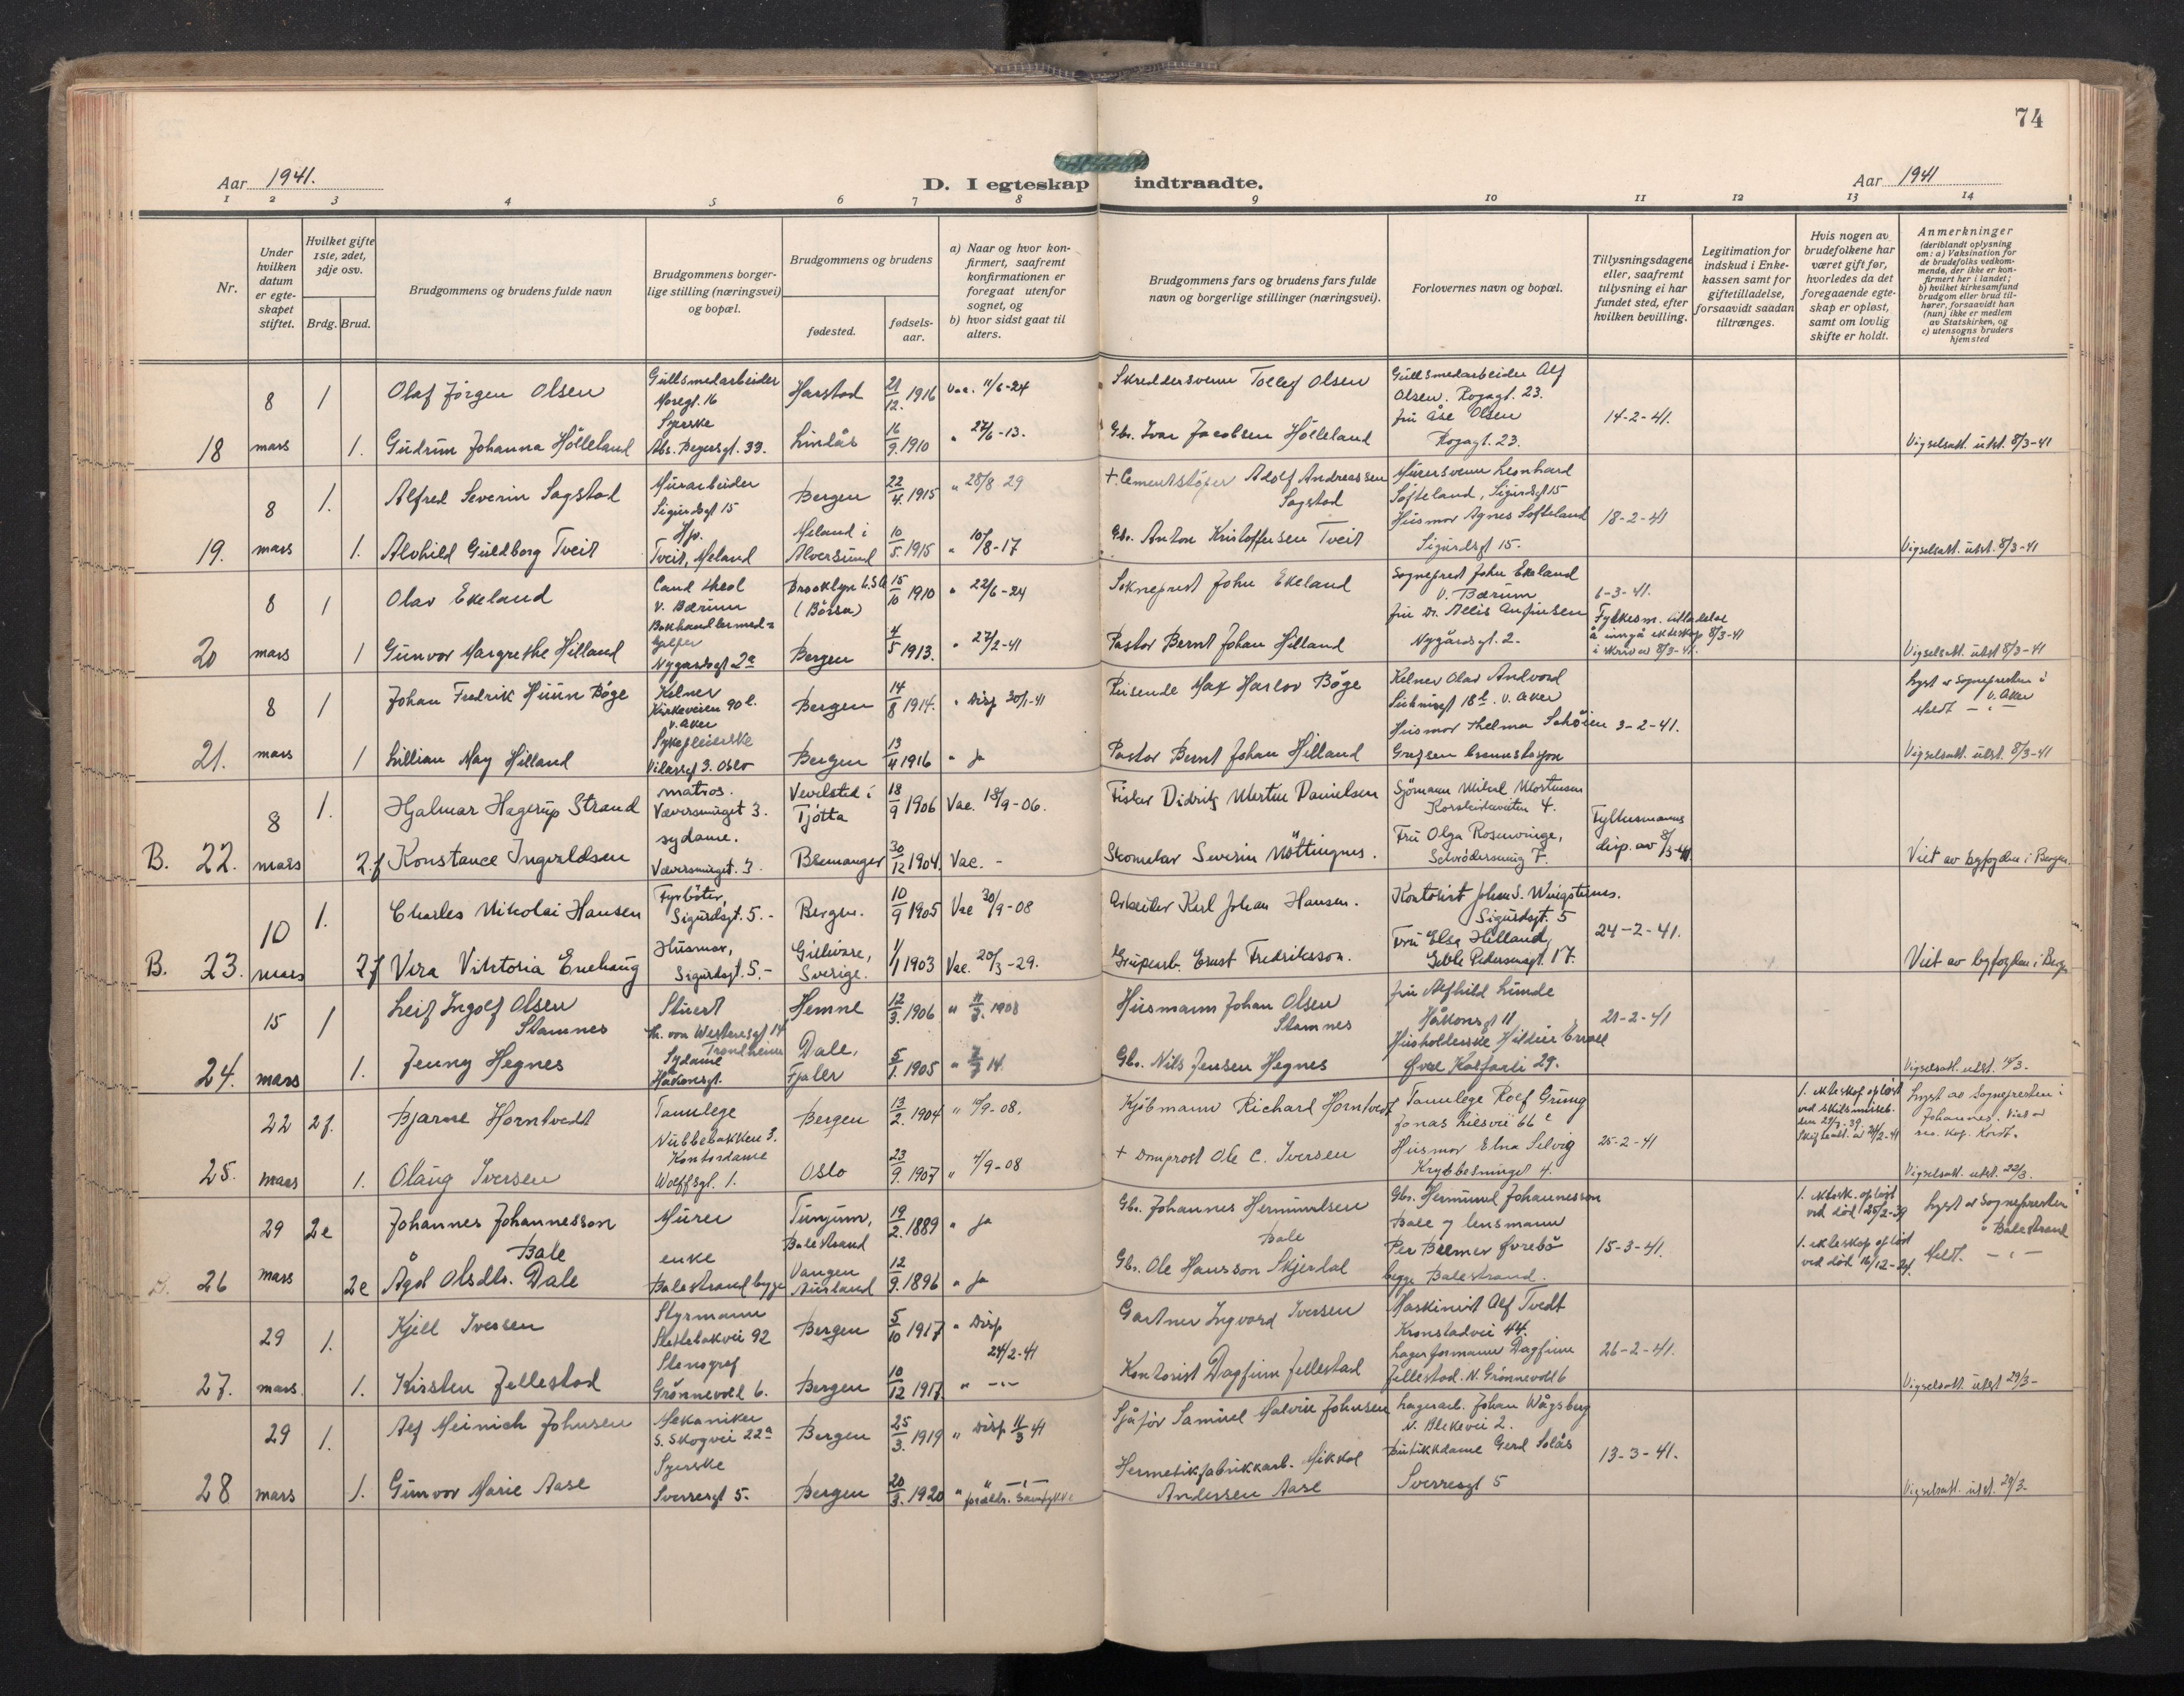 74
Aar 1941.
D. I egteskap indtraadte.
Aar 1941
1 2 3 4 5 6 7 8 9 10 11 12 13 14
Nr.
Under hvilken datum er egte-skapet stiftet.
Hvilket gifte 1ste, 2det, 3dje osv.
Brdg. Brud.
Brudgommens og brudens fulde navn
Brudgommens borger-lige stilling (næringsvei) og bopæl.
Brudgommens og brudens
fødested.
fødsels-aar.
a) Naar og hvor kon-firmert, saafremt konfirmationen er foregaat utenfor sognet, og
b) hvor sidst gaat til alters.
Brudgommens fars og brudens fars fulde navn og borgerlige stillinger (næringsvei).
Forlovernes navn og bopæl.
Tillysningsdagene eller, saafremt tillysning ei har fundet sted, efter hvilken bevilling.
Legitimation for indskud i Enke-kassen samt for giftetilladelse, forsaavidt saadan tiltrænges.
Hvis nogen av brudefolkene har været gift før, hvorledes da det foregaaende egte-skap er opløst, samt om lovlig skifte er holdt.
Anmerkninger
(deriblandt oplysning om: a) Vaksination for de brudefolks vedkom-mende, der ikke er kon-firmert her i landet;
b) hvilket kirkesamfund brudgom eller brud til-hører, forsaavidt han (hun) ikke er medlem av Statskirken, og
c) utensogns bruders hjemsted
18 8 mars 1 Olaf Jörgen Olsen
Gullsmedarbeider
Harstad 21/12. 1916 Vac. 11/6-24
Skreddersvenn Tollef Olsen
Gullsmedarbeider Alf Olsen.
fru Åse Olsen
14-2-41.
1. Gudrun Johanna Hölleland
Syerske
Abs. Beyersgt. 33.
Lindås 16/9. 1910 " 27/6-13.
Gbr. Ivar Jacobsen Hölleland
Vigselsatt. utst. 8/3-41
19. 8 mars 1. Alfred Severin Sagstad
Murarbeider
Sigurdsgt 15
Bergen 22/4. 1915 " 28/8 29
+ Cementstöper Adolf Andreassen Sagstad
Murersvenn Leonhard Softeland, Sigurdsgt 15
Husmor Agnes Softeland
18-2-41
1. Alvhild Guldborg Tveit
Hjv.
Tveit, Meland
Meland i Alversund 10/5. 1915 " 10/8-17
Gbr. Anton Kristoffersen Tveit
Sigurdsgt 15.
Vigselsatt. utst. 8/3-41
20 8 mars 1 Olav Ekeland
Cand theol
V. Bærum
Brooklyn U.S.A (Börsa) 15/10 1910 " 22/6-24
Sokneprest John Ekeland
Sogneprest John Ekeland
V. Bærum
6-3-41.
1 Gunvor Margrethe Hilland
Nygårdsgt 2a
Bergen 4/5 1913. " 27/2-41
Pastor Bernt Johan Hilland
Nygårdsgt. 2.
Fylkesm. tilladelse å inngå ekteskap 8/3-41
i skriv av 8/3-41.
Vigselsatt. utst 8/3-41
21. 8 mars 1 Johan Fredrik Huun Böge
Kelner
Kirkeveien 90 l.
V. Aker
Bergen 14/8 1914. " Disp 30/1-41
Reisende Max Harlov Böge
Kelner Olav Andvord
V. Aker
Lyst av Sognepresten i V. Aker
Meldt - " -
1 Lillian May Hilland
Sykepleierske
Oslo
Bergen 13/4 1916 " ja
Pastor Bernt Johan Hilland
Husmor Thelma Schöien
3-2-41.
Grefsen
Vigselsatt. utst. 8/3-41
B. 22. 8 mars 1. Hjalmar Hagerup Strand
matros.
Væversmuget 3.
Vevelstad i Tjötta 18/9 1906 Vac. 18/9-06.
Fisker Didrik Martin Danielsen
Sjömann Mikal Mortensen
Korskirkeveiten 4.
Fylkesmanns disp. av 8/3-41
2.f Konstance Ingvaldsen
sydame.
Væversmuget. 3.
Bremanger 30/12 1904. Vac. -
Skomaker Severin Nöttingnes.
Fru Olga Rosenvinge,
Schrödersmug 7.
Viet av byfogden i Bergen.
B. 23. 10 mars 1. Charles Nikolai Hansen
Fyrböter,
Sigurdsgt. 5.-
Bergen. 10/9 1905 Vac 30/9-08
Arbeider Karl Johan Hansen.
Kontorist Johan S.
Sigurdsgt. 5
24-2-41.
2f Vera Viktoria Enehaug
Husmor,
Sigurdsgt. 5.-
Gellivare, Sverige. 1/1 1903 Vac. 20/3-29.
Grubearb. Ernst Fredriksson.
Fru Elsa Hilland,
Geble Pedersensgt. 17.
Viet av byfogden i Bergen
24. 15 mars 1 Leif Ingolf Olsen Stamnes
Stuert
Th. von Westensgt 14
Trondheim
Hemne 12/3. 1906 " 1908
Husmann Johan Olsen Stamnes
fru Alfhild Lunde
Håkonsgt 11
21-2-41
1. Jenny Hegnes
Sydame
Håkonsgt.
Dale, Fjaler 5/1. 1905 " 14
Gbr. Nils Jensen Hegnes
Husholderske Hildur
Øvre Kalfarli 29.
Vigselsatt. utst. 15/3.
25. 22 mars 2f. Bjarne Horntvedt
Tannlege
Nubbebakken 3.
Bergen 13/2. 1904 " 15/9-08.
Kjöbmann Richard Horntvedt
Tannlege Rolf Grung
Jonas Liesvei 66 c
25-2-41
1. ekteskap oplöst ved skilsmisseb.
Skifteatt. av 24/2-41
Lyst av Sognepresten i Johannes. Viet av res. kap. Kordt.
1. Olaug Iversen
Kontordame
Wolffsgt. 1.
Oslo 23/9. 1907 " 4/9-08
+ Domprost Ole C. Iversen
Husmor Elna Selvig
Krybbesmuget 4.
Vigselsatt. utst. 22/3.
26 29 mars 2e Johannes Johannesson Bale
Murer
Tunjum, Balestrand 19/2. 1889 " ja
Gbr. Johannes Hermundsen Bale
Gbr. Hermund Johannesson
Bale og lensmann
1. ektesk. oplöst ved död 25/2-39
Lyst av Sognepresten i Balestrand
2e Ågot Olsdtr. Dale
enke
Balestrand begge
Vangen Aurland 12/9. 1896 " ja
Gbr. Ole Hansson Skjerdal
Per Bremer Øvrebö
begge Balestrand.
15-3-41.
1. ekteskap oplöst ved död 16/12-24.
Meldt. - " -
27. 29 mars 1. Kjell Iversen
Styrmann
Slettebakvei 92
Bergen 5/10 1917 " Disp 24/2-41
Gartner Ingvard Iversen
Maskinist Alf Tvedt
Kronstadvei 44.
26-2-41.
1. Kirsten Jellestad
Stenograf
Grönnevoll 6.
Bergen 10/12 1917 " - " -
Kontorist Dagfinn Jellestad
Lagerformann Dagfinn Jellestad. N. Grönnevoll 6
Vigselsatt. utst 29/3-
28 29 mars 1. Alf Meinich Johnsen
Mekaniker
S. Skogvei 22a
Bergen 25/3. 1919 " Disp. 11/3 41
Sjåför Samuel Malvin Johnsen
Lagerarb. Johan Wågsberg
N. Blekevei 2.
13-3-41.
1. Gunvor Marie Aase
Syerske
Sverresgt 5.
Bergen 20/3. 1920 " - " - foreldr. samtykke
Hermetikfabrikkarb. Mikkal Andersen Aase
Butikkdame Gerd Solås
Sverresgt 5
Vigselsatt. utst. 29/3-